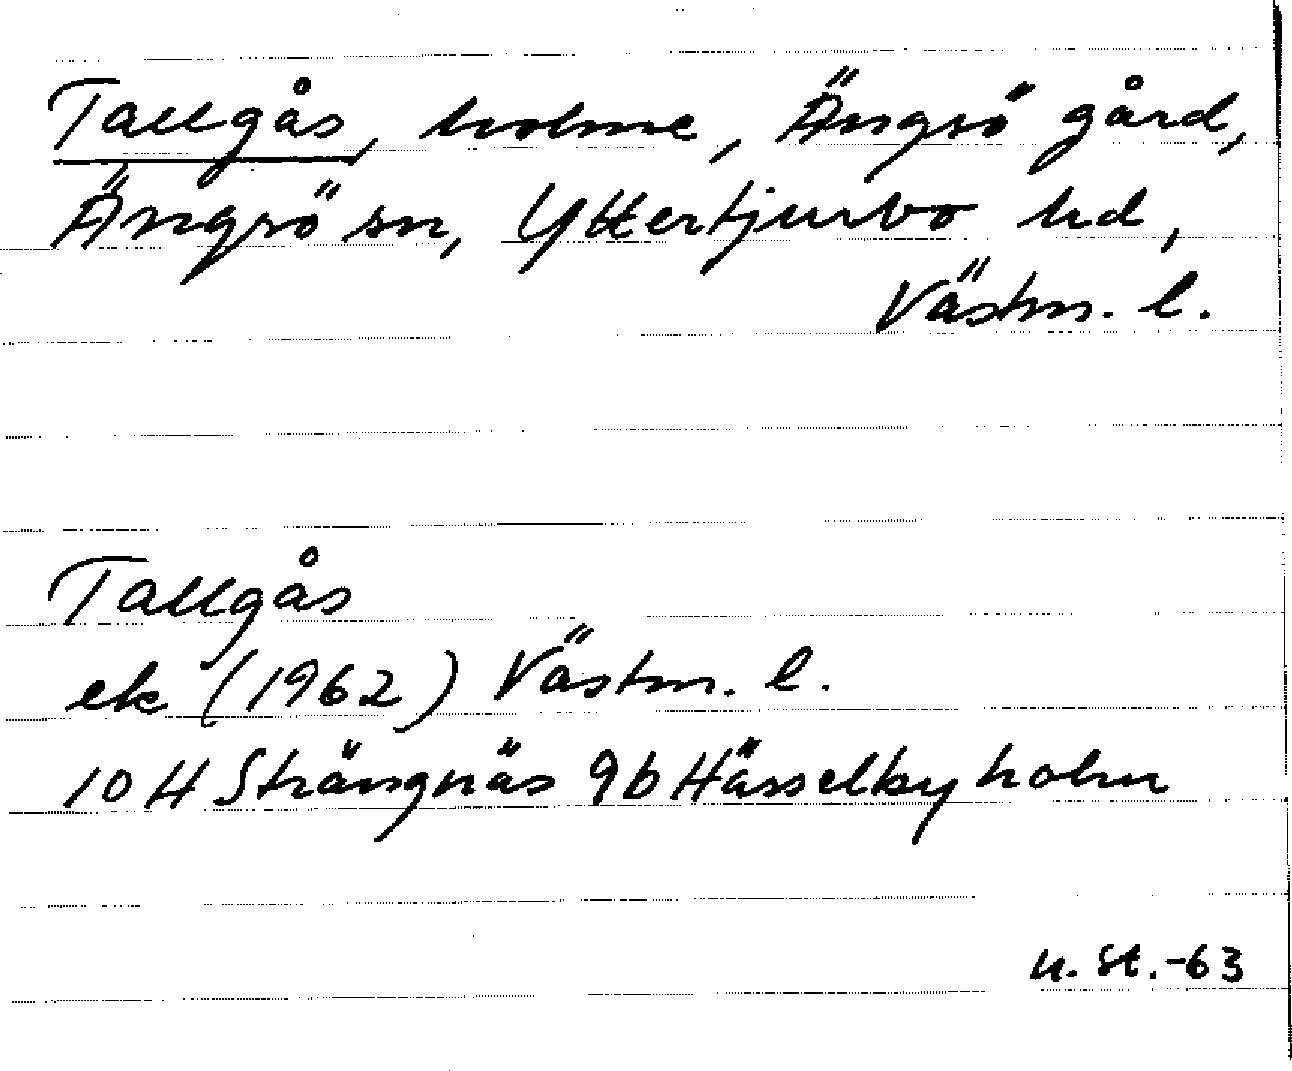 Tallgås, holme, Ängsö gård,
Ängsö sn, Yttertjurbo hd,
Västm. l.
Tallgås
ek (1962) Västm. l.
10 H Strängnäs 9b Hässelbyholm
U. St. -63